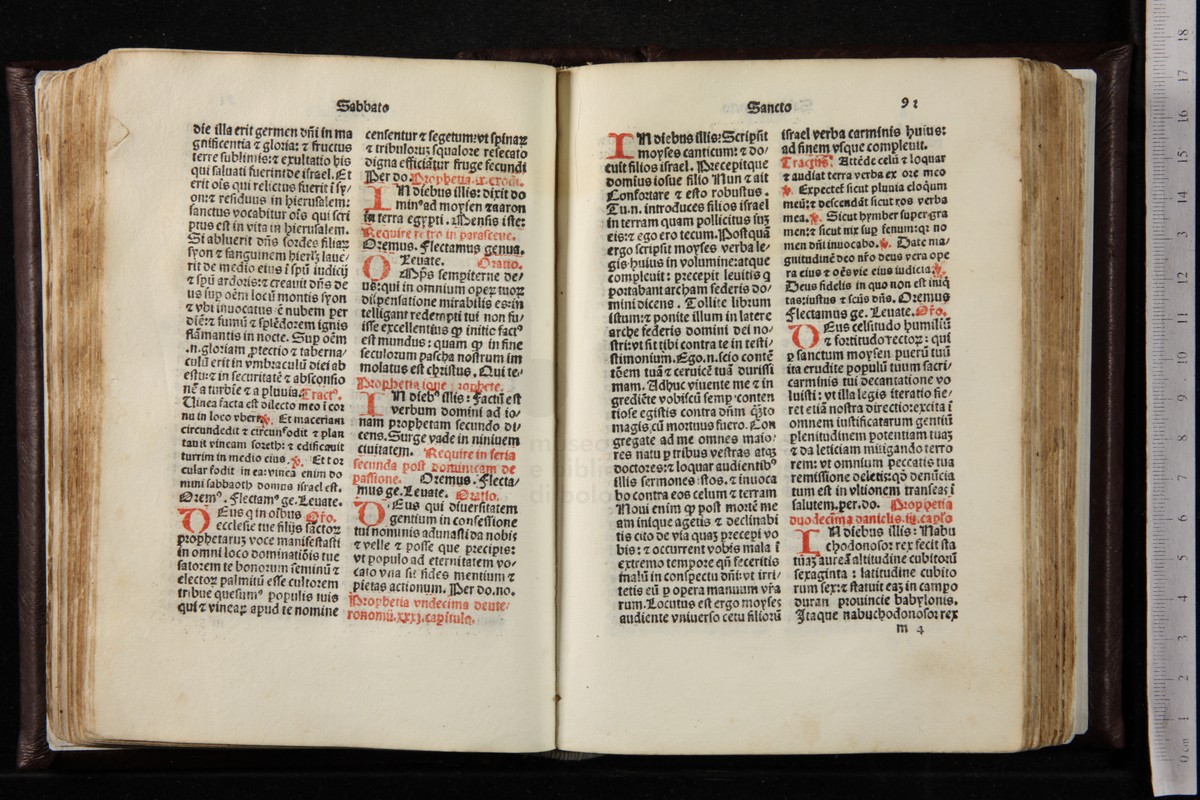 Sabbato
die illa erit germen dñi in ma
gnificentia ⁊ gloria: ⁊ fructus
terre sublimis: ⁊ exultatio his
qui saluati fuerint de israel. Et
erit oĩs qui relictus fuerit ĩ sy/
on: ⁊ residuus in hierusalem:
sanctus vocabitur oĩs qui scri
ptus est in vita in hierusalem.
Si abluerit dñs sordes filiaꝝ
syon ⁊ sanguinem hierl̃z laue/
rit de medio eius ĩ spũ iudicij
⁊ spũ ardoris: ⁊ creauit dñs de
us sup oẽm locũ montis syon
⁊ vbi inuocatus ẽ nubem per
diẽ: ⁊ fumũ ⁊ splẽdorem ignis
flãmantis in nocte. Sup oẽm
.n. gloriam ꝓtectio ⁊ taberna/
culũ erit in vmbraculũ diei ab
estu: ⁊ in securitatẽ ⁊ absconsio
nẽ a turbĩe ⁊ a pluuia. Tractꝰ.
Uinea facta est dilecto meo ĩ cor
nu in loco vberi. ℣. Et maceriam
circundedit ⁊ circunfodit ⁊ plan
tauit vineam soreth: ⁊ edificauit
turrim in medio eius. ℣. Et tor
cular fodit in ea: vinea enim do
mini sabbaoth domus israel est.
Oremꝰ. Flectamꝰ ge. Leuate.
DEus q̃ in oĩbus Oro.
ecclesie tue filijs sãctoꝝ
prophetarum voce manifestasti
in omni loco dominatiõis tue
satorem te bonorum seminũ ⁊
electoꝝ palmitũ esse cultorem
tribue quesumꝰ populis tuis
qui ⁊ vineaꝝ apud te nomine
censentur ⁊ segetum: vt spinaꝝ
⁊ tribulorum squalore resecato
digna efficiãtur fruge fecundi
Per do. Prophetia .ix. exodi.
IN diebus illis: dixit do
minꝰ ad moysen ⁊ aaron
in terra egypti. Mensis iste:
Require retro in parasceue.
Oremus. Flectamus genua.
Leuate. Oratio.
OMp̃s sempiterne de/
us: qui in omnium operum tuoꝝ
dispensatione mirabilis es: in
telligant redempti tui non fu/
isse excellentius ꝙ initio factꝰ
est mundus: quam ꝙ in fine
seculorum pascha nostrum im
molatus est christus. Qui te/
Prophetia ione prophete.
IN diebꝰ illis: Factũ est
verbum domini ad io/
nam prophetam secundo di/
cens. Surge vade in niniuem
ciuitatem. Require in feria
secunda post dominicam de
passione. Oremus. Flecta/
mus ge. Leuate. Oratio.
DEus qui diuersitatem
gentium in confessione
tui nominis adunasti da nobis
⁊ velle ⁊ posse que precipis:
vt populo ad eternitatem vo/
cato vna sit fides mentium ⁊
pietas actionum. Per do. no.
Prophetia vndecima deute/
ronomij. xxxj. capitulo.
Sancto 91
IN diebus illis: Scripsit
moyses canticum: ⁊ do/
cuit filios israel. Precepitque
dominus iosue filio Nun ⁊ ait
Confortare ⁊ esto robustus.
Tu .n. introduces filios israel
in terram quam pollicitus sum
eis: ⁊ ego ero tecum. Postquã
ergo scripsit moyses verba le/
gis huius in volumine: atque
compleuit: precepit leuitis q̃
portabant archam federis do/
mini dicens. Tollite librum
istum: ⁊ ponite illum in latere
arche federis domini dei no/
stri: vt sit tibi contra te in testi/
stimonium. Ego .n. scio contẽ
tõem tuã ⁊ ceruicẽ tuã durissi
mam. Adhuc viuente me ⁊ in
grediẽte vobiscũ semp conten
tiose egistis contra dñm q̃to
magis cũ mortuus fuero. Con
gregate ad me omnes maio/
res natu ꝑ tribus vestras atq;
doctores: ⁊ loquar audientibꝰ
illis sermones istos. ⁊ inuoca
bo contra eos celum ⁊ terram
Noui enim ꝙ post mortẽ me
am inique agetis ⁊ declinabi
tis cito de via quam precepi vo
bis: ⁊ occurrent vobis mala ĩ
extremo tempore qñ feceritis
malũ in conspectu dñi: vt irri/
tetis eũ ꝑ opera manuum vr̃a
rum. Locutus est ergo moyses
audiente vniuerso cetu filiorũ
israel verba carminis huius:
ad finem vsque compleuit.
Tractus. Attẽde celũ ⁊ loquar
⁊ audiat terra verba ex ore meo
℣. Expectet̃ sicut pluuia eloqum
meũ: ⁊ descendãt sicut ros verba
mea. ℣. Sicut hymber super gra
men: ⁊ sicut nix sup fenum: qꝛ no
men dñi inuocabo. ℣. Date ma/
gnitudinẽ deo nr̃o deus vera ope
ra eius ⁊ oẽs vie eius iudicia. ℣.
Deus fidelis in quo non est iniq̃
tas: iustus ⁊ scũs dñs. Oremus
Flectamus ge. Leuate. Oro.
DEus celsitudo humiliũ
⁊ fortitudo rectoꝝ: qui
ꝑ sanctum moysen puerũ tuũ
ita erudite populũ tuum sacri/
carminis tui decantatione vo
luisti: vt illa legis iteratio fie/
ret etiã nostra directio: excita ĩ
omnem iustificatarum gentiũ
plenitudinem potentiam tuam
⁊ da leticiam mitigando terro
rem: vt omnium peccatis tua
remissione deletis: qd̃ denũcia
tum est in vltionem transeat ĩ
salutem. per. do. Prophetia
duodecima danielis .iij. cap̃lo
IN diebus illis: Nabu
chodonosor rex fecit sta
tuam aureã altitudine cubitorũ
sexaginta: latitudine cubito
rum sex: ⁊ statuit eam in campo
duran prouincie babylonis.
Itaque nabuchodonosor rex
m 4